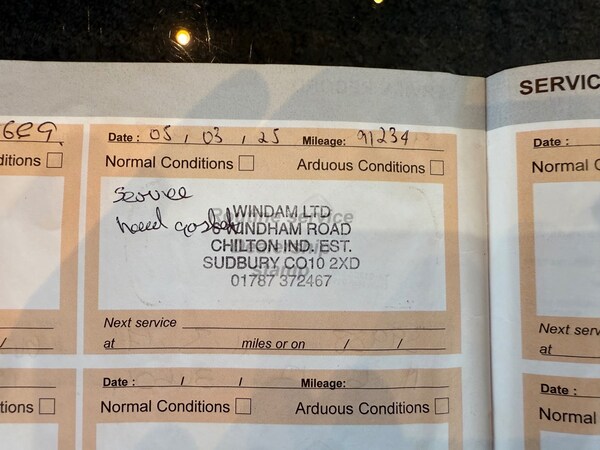 SERVIC
6e9.
Date : 05 / 03 / 25 Mileage: 91234
Date :
itions
Normal Conditions Arduous Conditions
Normal C
Service
head gasket
WINDAM LTD
6 WINDHAM ROAD
CHILTON IND. EST.
SUDBURY CO10 2XD
01787 372467
Routine Service
stamp
Next service
Next serv
/
at miles or on / /
at
Date : / / Mileage:
Date :
tions
Normal Conditions Arduous Conditions
Normal